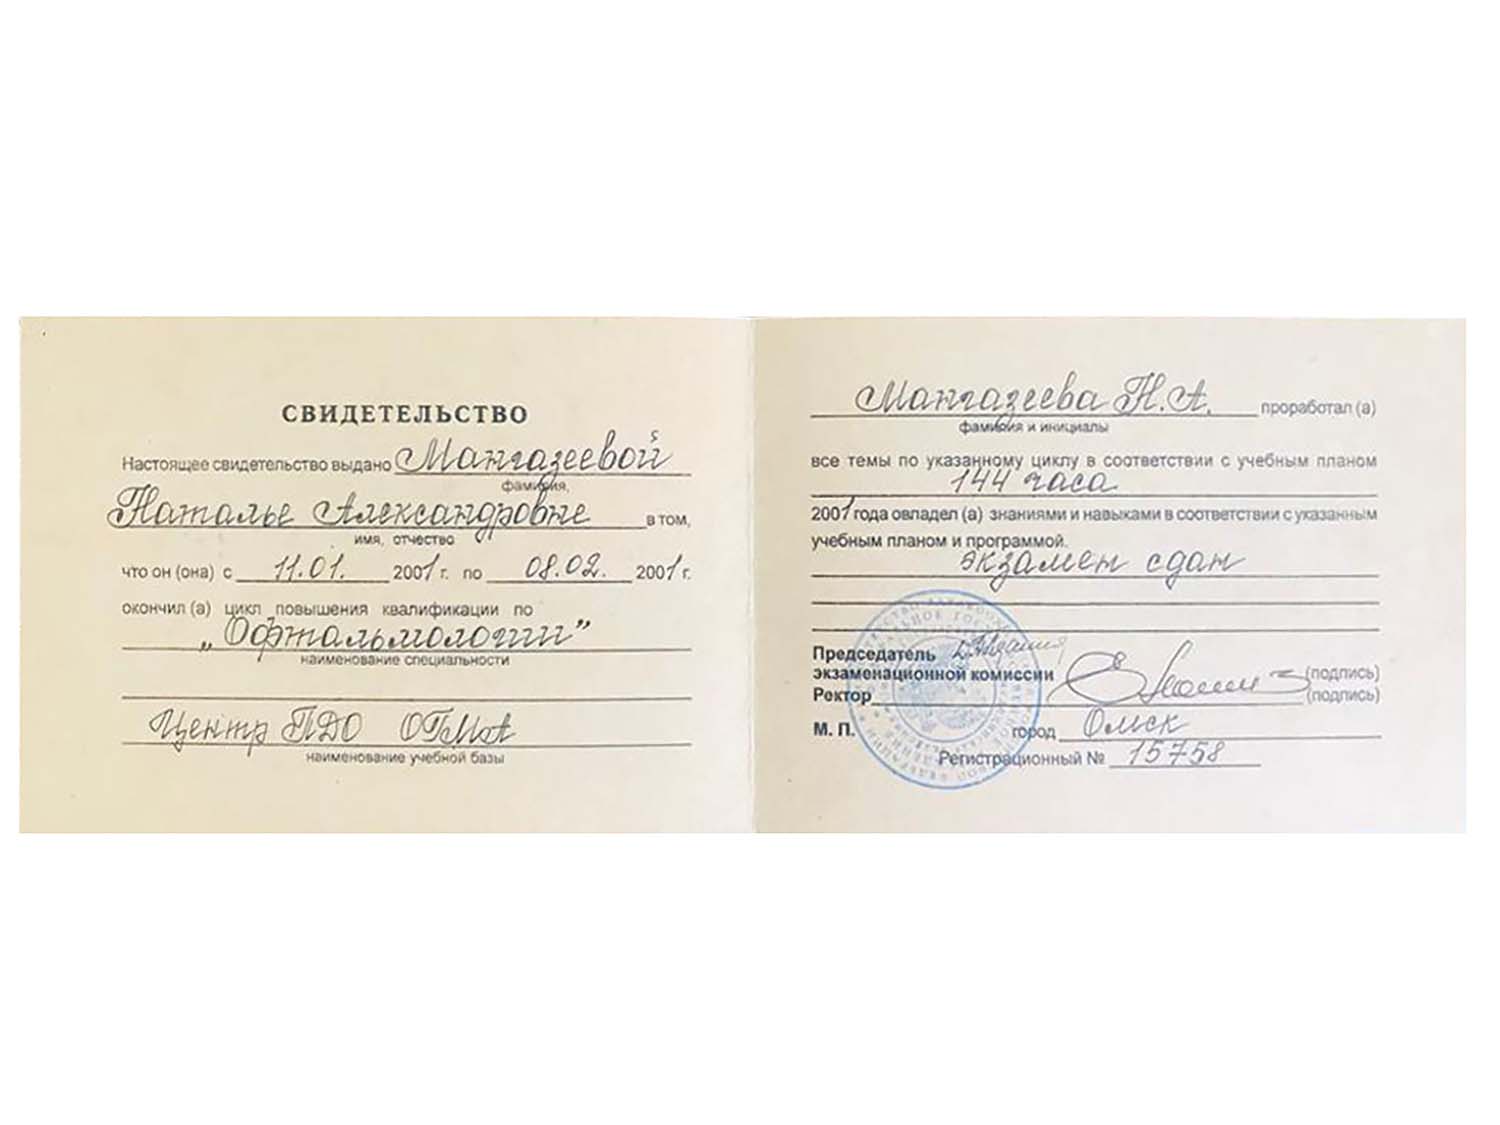 СВИДЕТЕЛЬСТВО
Настоящее свидетельство выдано Мангазеевой
фамилия,
Наталье Александровне в том,
имя, отчество
что он (она) с 11.01. 2001 г. по 08.02. 2001 г.
окончил (а) цикл повышения квалификации по
„Офтальмологии”
наименование специальности
Центр ПДО ОГМА
наименование учебной базы
Мангазеева Н.А. проработал (а)
фамилия и инициалы
все темы по указанному циклу в соответствии с учебным планом
144 часа
2001 года овладел (а) знаниями и навыками в соответствии с указанным
учебным планом и программой.
экзамен сдан
Председатель
экзаменационной комиссии (подпись)
Ректор (подпись)
М. П. город Омск
Регистрационный № 15758